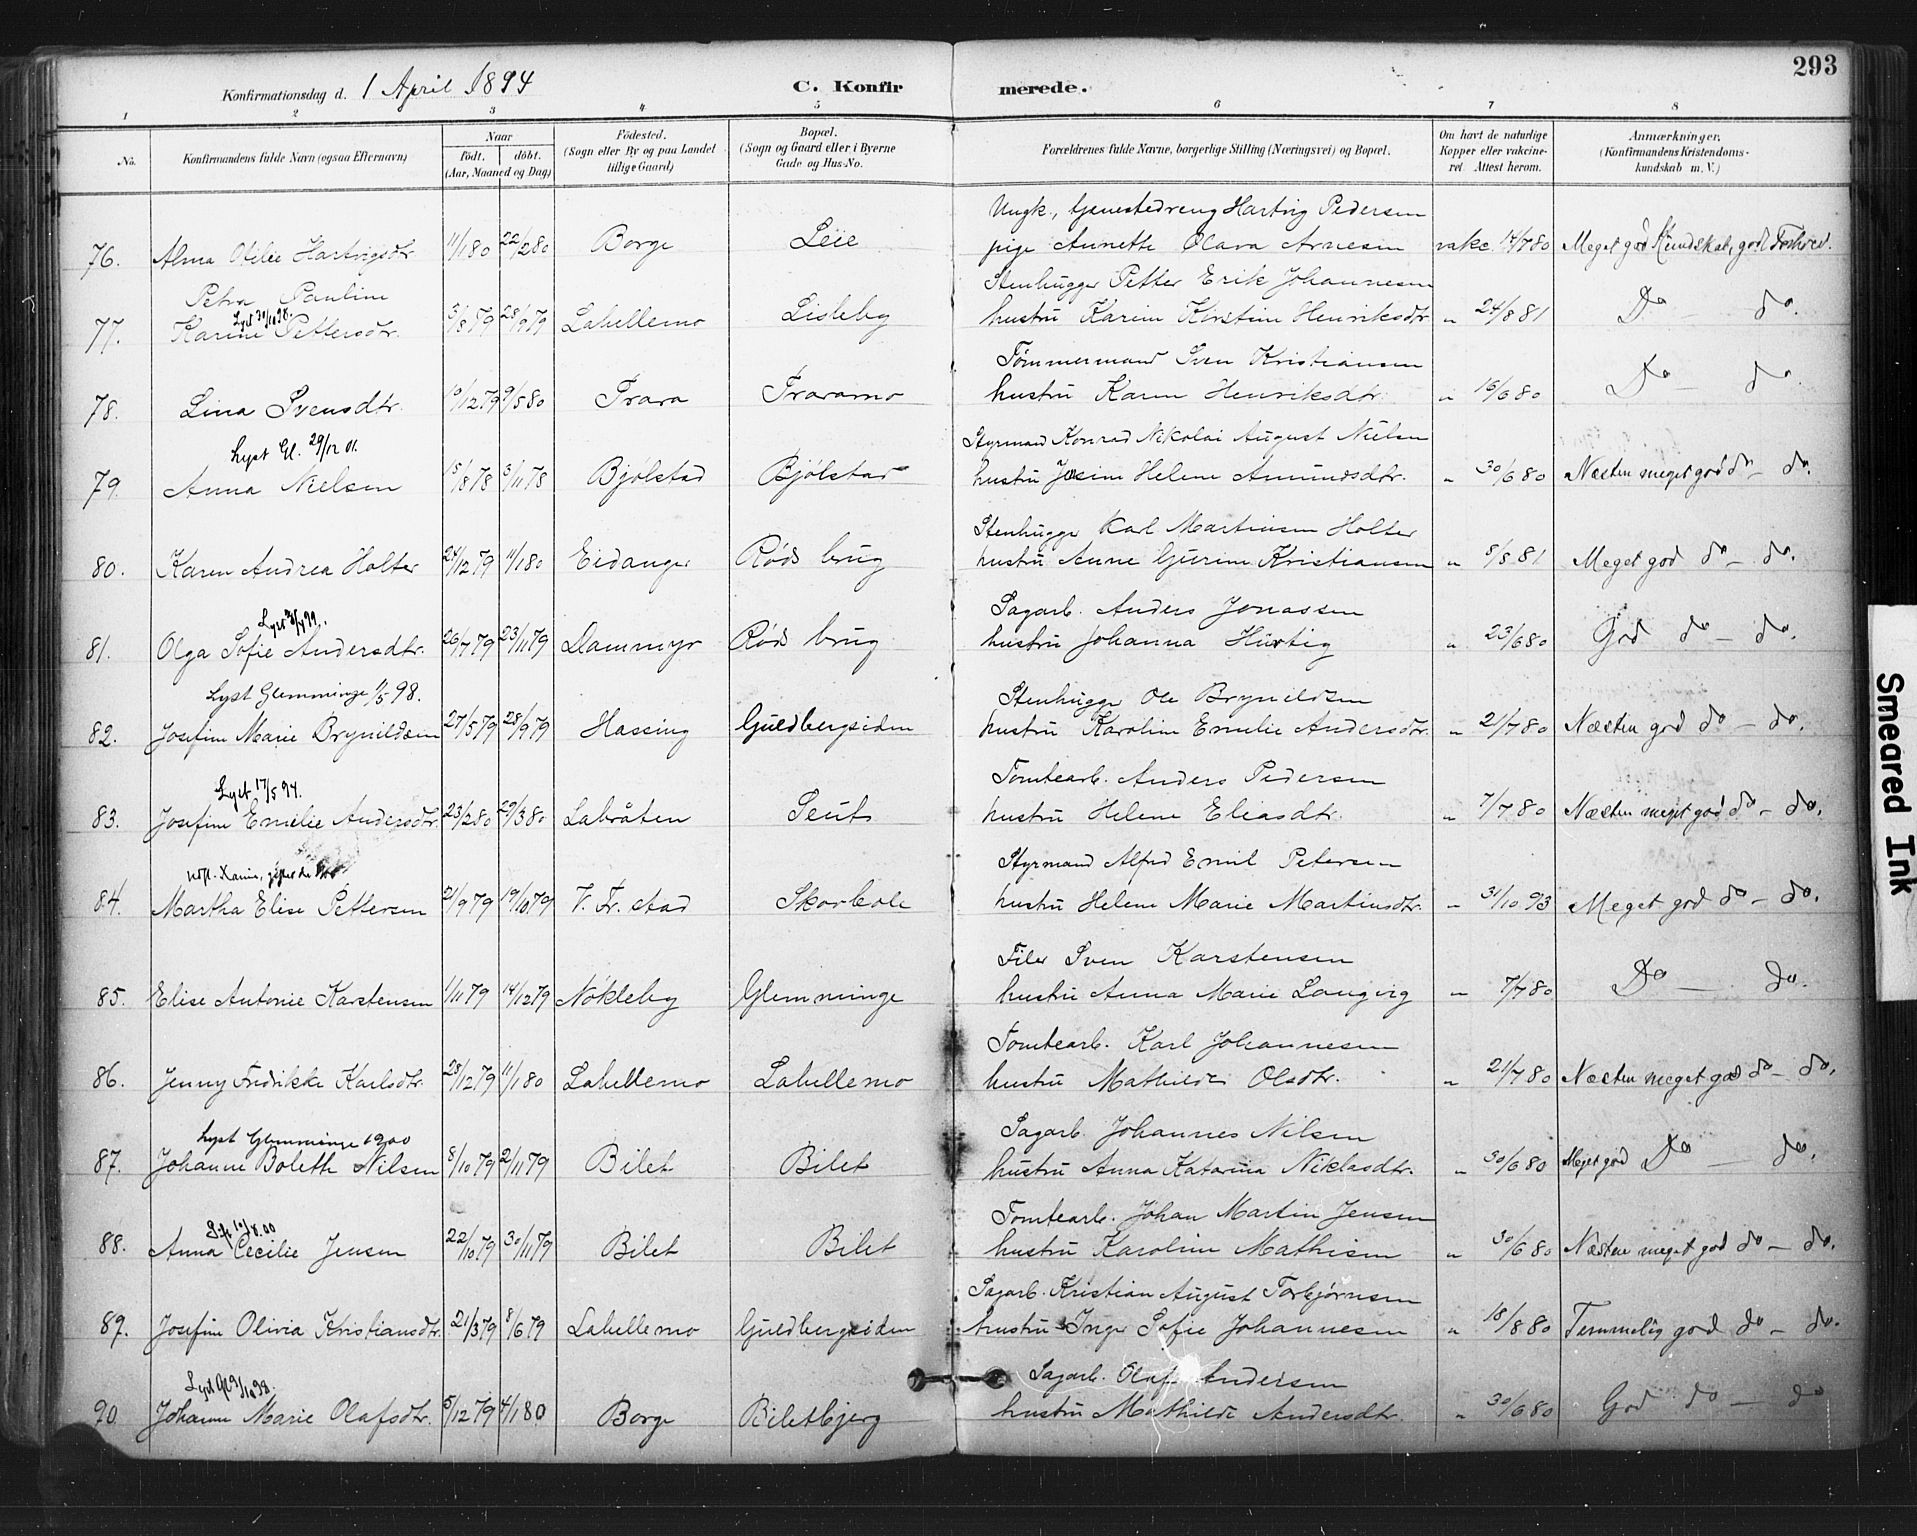 293
Konfirmationsdag d. 1 April 1894 C. Konfirmerede.
1 2 3 4 5 6 7 8
No. Konfirmandens fulde Navn (ogsaa Efternavn) Naar født. døbt. (Aar, Maaned og Dag) Fødested. (Sogn eller By og paa Landet tillige Gaard) Bopæl. (Sogn og Gaard eller i Byerne Gade og Hus-No. Forældrenes fulde Navne, borgerlige Stilling (Næringsvei) og Bopæl. Om havt de naturlige Kopper eller vakcineret. Attest herom. Anmærkninger, (Konfirmandens Kristendomskundskab m. V.)
Ungk., tjenestedreng Hartvig Pedersen
76. Alma Otilie Hartvigsdtr. 11/1 80 22/2 80 Borge Leie pige Annette Olava Arnesen vakc. 14/7 80 Meget god Kundskab, god Forhold.
Petra Pauline Stenhugger Petter Erik Johannesen
Lyst 30/10 98.
77. Karine Pettersdtr. 5/8 79 28/9 79 Labellemo Lisleby hustru Karin Kirstine Henriksdtr " 24/8 81 Do do.
Tømmermand Sven Kristiansen
78. Lina Svensdtr. 10/12 79 9/5 80 Trara Traramo hustru Karen Henriksdtr. " 16/6 80 Do — do.
Lyst Gl. 29/12 01. Styrmand Konrad Nikolai August Nielsen
79. Anna Nielsen 15/8 78 3/11 78 Bjølstad Bjølstad hustru Josine Helene Amundsdtr. " 30/6 80 Næsten meget god do — do.
Stenhugger Karl Martinsen Holter
80. Karen Andrea Holter 24/12 79 11/1 80 Eidanger Røds brug hustru Anne Gurine Kristiansen " 8/8 81 Meget god do — do.
Sagarb. Anders Jonassen
81. Olga Sofie Andersdtr. 26/7 79 23/11 79 Dammyr Røds brug hustru Johanna Hurtig " 23/6 80 God do — do.
Lyst Glemminge 1/5 98. Stenhugger Ole Bryneldsen
82. Josefine Marie Brynildsen 27/5 79 28/9 79 Hassing Guldbergsiden hustru Karoline Emelie Andersdtr. " 21/7 80 Næsten god do — do.
Lyst 17/5 94. Tomtearb. Anders Pedersen
83. Josefine Emelie Andersdtr. 23/2 80 29/3 80 Labråten Seut hustru Helene Eliasdtr. " 7/7 80 Næsten meget god do — do.
Styrmand Alfred Emil Petersen
84. Martha Elise Pettersen 21/9 79 19/10 79 V. Fr. stad Skorbole hustru Helene Marie Martinsdtr. " 31/10 93 Meget god do — do.
Filer Sven Karstensen
85. Elise Antonie Karstensen 1/11 79 14/12 79 Nøkleby Glemminge hustru Anna Marie Langvig " 7/7 80 Do — do.
Tomtearb. Karl Johannesen
86. Jenny Fredrikke Karlsdtr. 28/12 79 11/1 80 Labellemo Labellemo hustru Mathilde Olsdtr. " 21/7 80 Næsten meget god do — do.
Lyst Glemminge 1900 Sagarb. Johannes Nilsen
87. Johanne Bolette Nilsen 8/10 79 2/11 79 Bilet Bilet hustru Anna Katarina Niklasdtr. " 30/6 80 Meget god Do — do.
Tomtearb. Johan Martin Jensen
88. Anna Cecilie Jensen 22/10 79 30/11 79 Bilet Bilet hustru Karoline Mathisen " 30/6 80 Næsten meget god do — do.
Sagarb. Kristian August Torbjørnsen
89. Josefine Olivia Kristiansdtr. 21/3 79 8/6 79 Labellemo Guldbergsiden hustru Inger Sofie Johannesen " 18/8 80 Temmelig god do — do.
Sagarb. Olaf Andersen
90. Johanne Marie Olafsdtr. 5/12 79 4/1 80 Borge Biletbjerg hustru Mathilde Andersdtr. " 30/6 80 God do — do
Smeared Ink